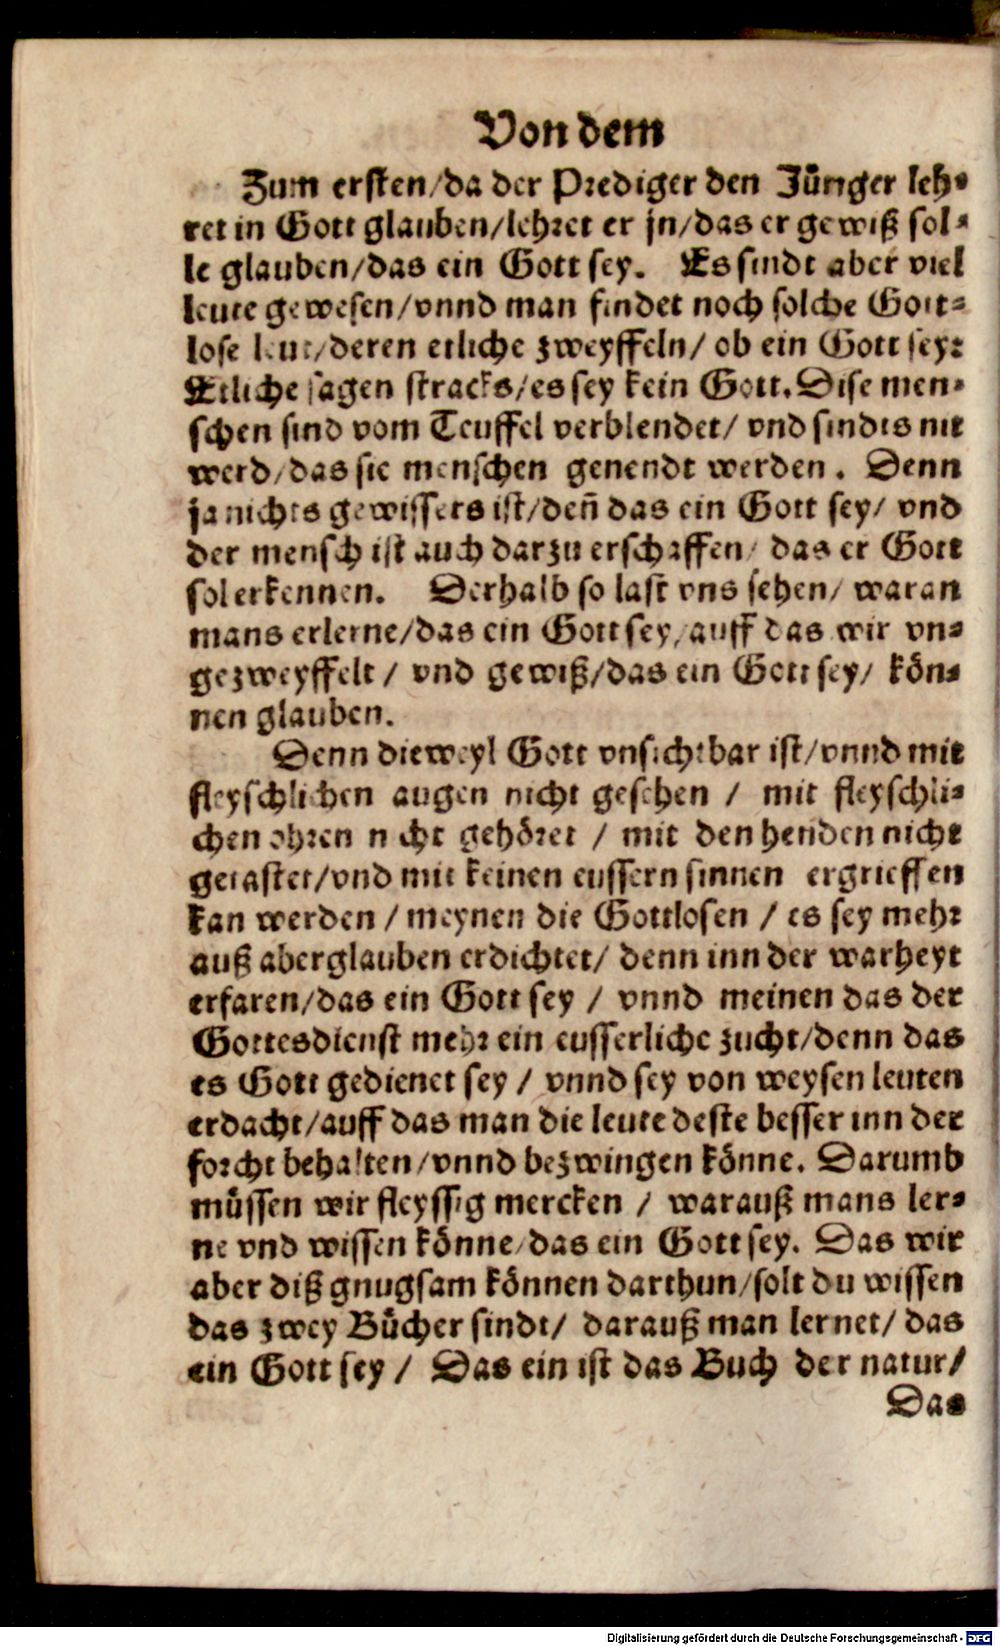 Von dem
Zum ersten/da der Prediger den Jünger leh-
ret in Gott glauben/lehret er jn/das er gewiß sol-
le glauben/das ein Gott sey. Es sindt aber viel
leute gewesen/vnnd man findet noch solche Gott-
lose leut/deren etliche zweyffeln/ ob ein Gott sey:
Etliche sagen stracks/es sey kein Gott. Dise men-
schen sind vom Teuffel verblendet/ vnd sindts nit
werd/das sie menschen genendt werden. Denn
ja nichts gewissers ist/deñ das ein Gott sey/ vnd
der mensch ist auch darzu erschaffen/ das er Gott
sol erkennen. Derhalb so last vns sehen/ waran
mans erlerne/das ein Gott sey/auff das wir vn-
gezweyffelt / vnd gewiß/das ein Gott sey/ kön-
nen glauben.
Denn dieweyl Gott vnsichtbar ist/vnnd mit
fleyschlichen augen nicht gesehen / mit fleyschli-
chen ohren nicht gehöret / mit den henden nicht
getastet/vnd mit keinen eussern sinnen ergrieffen
kan werden / meynen die Gottlosen / es sey mehr
auß aberglauben erdichtet/ denn inn der warheyt
erfaren/das ein Gott sey / vnnd meinen das der
Gottesdienst mehr ein eusserliche zucht/denn das
es Gott gedienet sey / vnnd sey von weysen leuten
erdacht/auff das man die leute deste besser inn der
forcht behalten/vnnd bezwingen könne. Darumb
müssen wir fleyssig mercken / warauß mans ler-
ne vnd wissen könne/das ein Gott sey. Das wir
aber diß gnugsam können darthun/solt du wissen
das zwey Bücher sindt/ darauß man lernet/ das
ein Gott sey / Das ein ist das Buch der natur/
Das
Digitalisierung gefördert durch die Deutsche Forschungsgemeinschaft - DFG